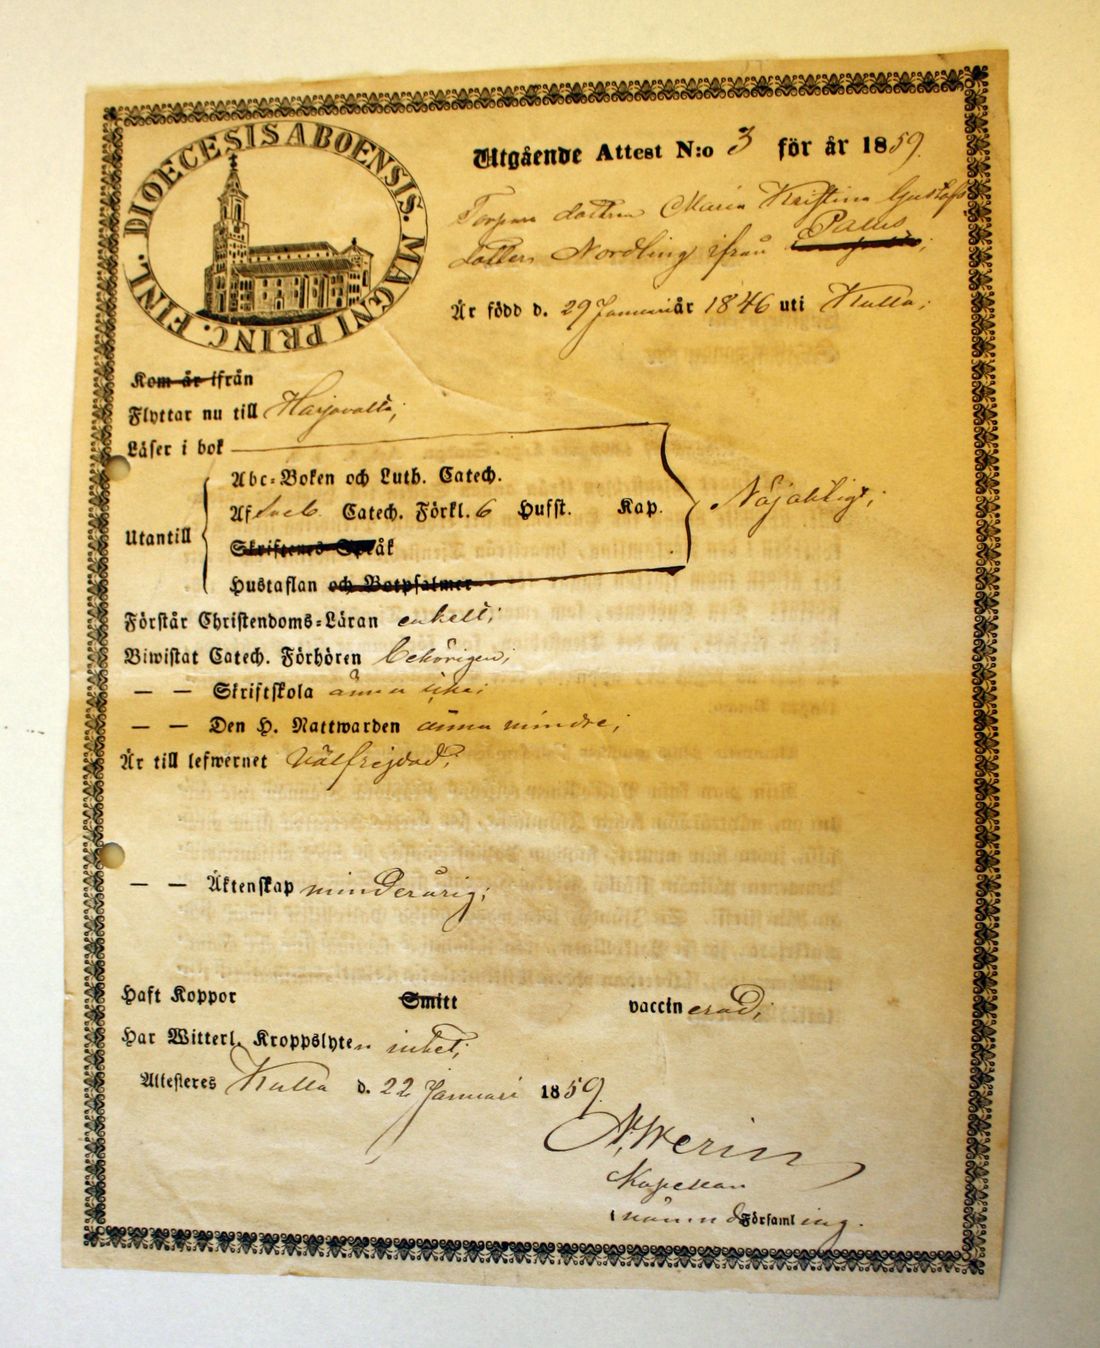 DIOECESIS ABOENSIS. MAGNI PRINC. FINL.
Utgående Attest N:o 3 för år 1859.
Torpare dottren Maria Kristina Gustafs
dotter Nordling ifrån
Är född d. 29 Januari år 1846 uti Kulla;
Kom år ifrån
Flyttar nu till Harjavalta;
Läser i bok
Abc-Boken och Luth. Catech.
Af Sveb. Catech. Förkl. 6 Hufst. Kap. Nöjaktigt;
Utantill
Skriftenes Språk
Hustaflan och Botpsalmer
Förstår Christendoms-Läran enkelt;
Biwistat Catech. Förhören behörigen;
— — Skriftskola ännu icke;
— — Den H. Nattwarden ännu mindre;
Är till lefwernet Välfrejdad;
— — Äktenskap minderårig;
Haft Koppor Smitt vaccinerad;
Har Witterl. Kroppslyten intet;
Attesteres Kulla d. 22 Januari 1859.
Kapellan
i nämnd Församling.